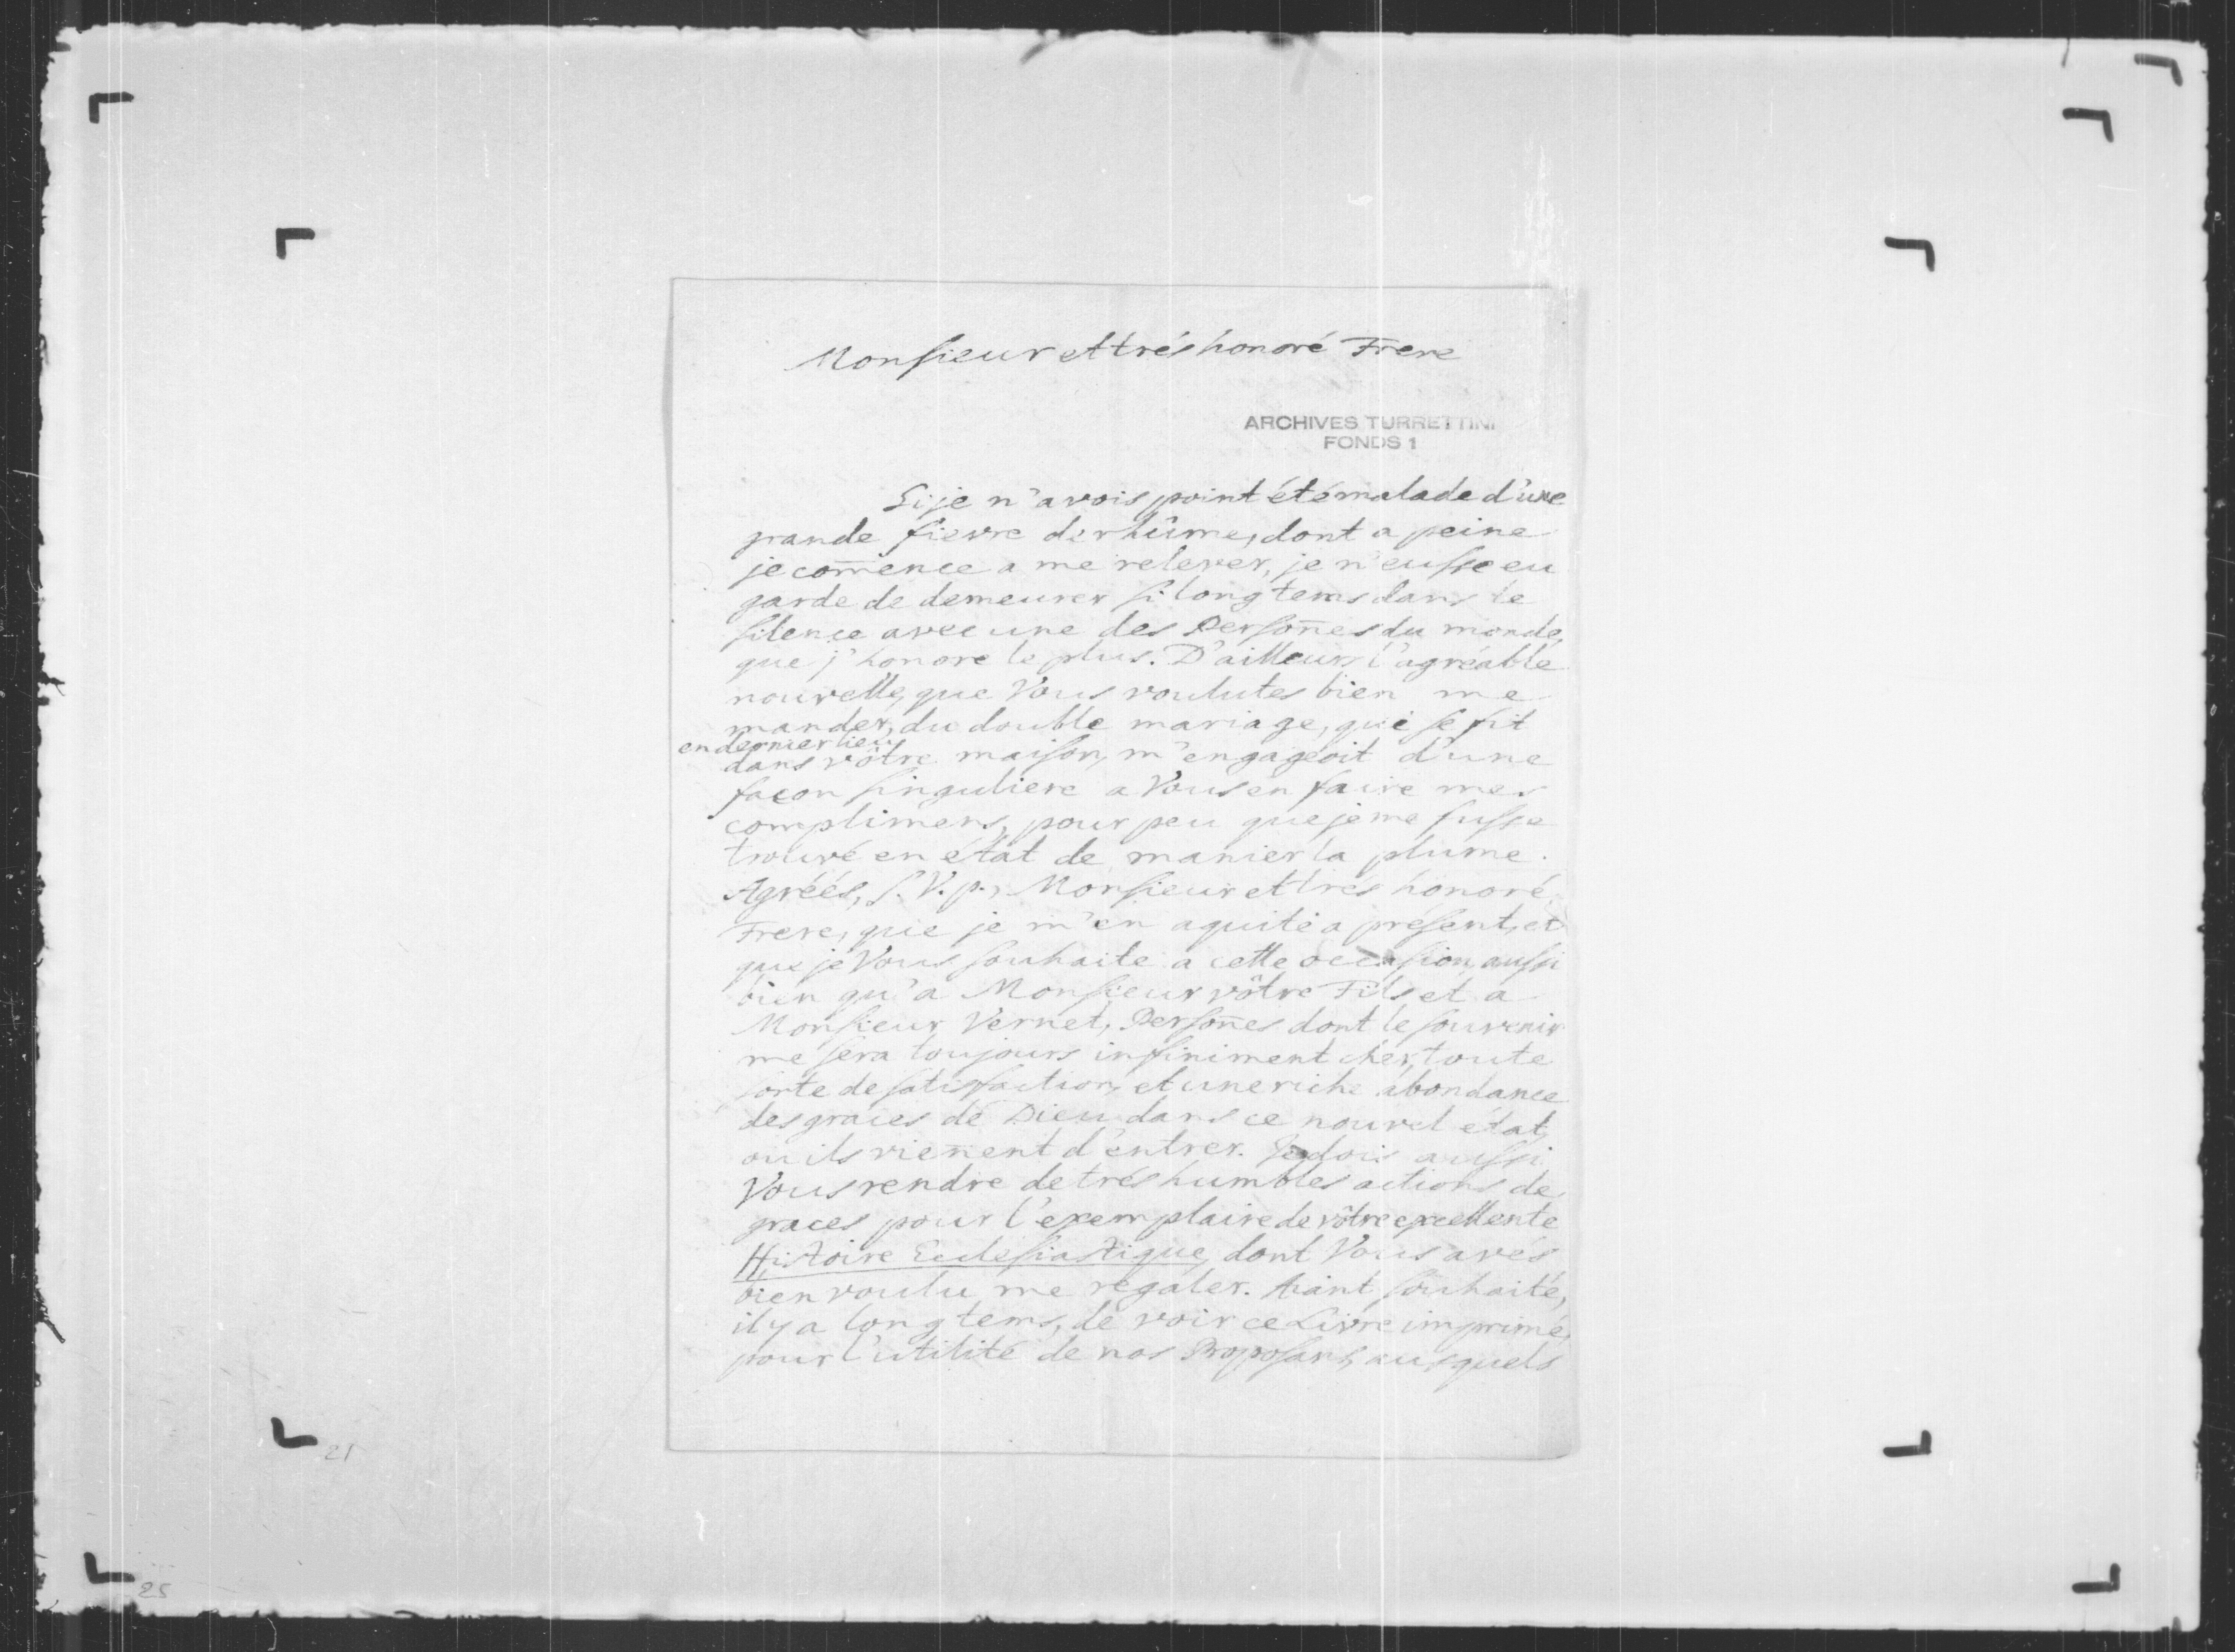 Monsieur et trés honoré Frere
ARCHIVES TURRETTINI
FONDS 1
Si je n'avois point été malade d'une
grande fievre de rhûme, dont a peine
je com̄ence a me relever, je n'eusse eu
garde de demeurer si long tems dans le
silence avec une des Person̄es du monde,
que j'honore le plus. D'ailleurs l'agréable
nouvelle, que Vous voulutes bien me
mander, du double mariage, qui se fit
en dernier lieu
dans vôtre maison, m'engageoit d'une
façon singuliere a Vous en faire mes
complimens, pour peu que je me fusse
trouvé en état de manier la plume.
Agréés, s. V. p., Monsieur et trés honoré
Frere, que je m'en aquite a present, et
que je Vous souhaite a cette occasion, aussi
bien qu'a Monsieur vôtre Fils et a
Monsieur Vernet, Person̄es dont le souvenir
me sera toujours infiniment cher, toute
sorte de satisfaction, et une riche abondance
des graces de Dieu dans ce nouvel état,
ou ils vien̄ent d'entrer. Je dois aussi
Vous rendre de trés humbles actions de
graces pour l'exemplaire de vôtre excellente
Histoire Ecclesiastique, dont Vous avés
bien voulu me regaler. Aiant souhaité,
il y a long tems, de voir ce Livre imprimé,
pour l'utilité de nos Proposans, ausquels
21
25